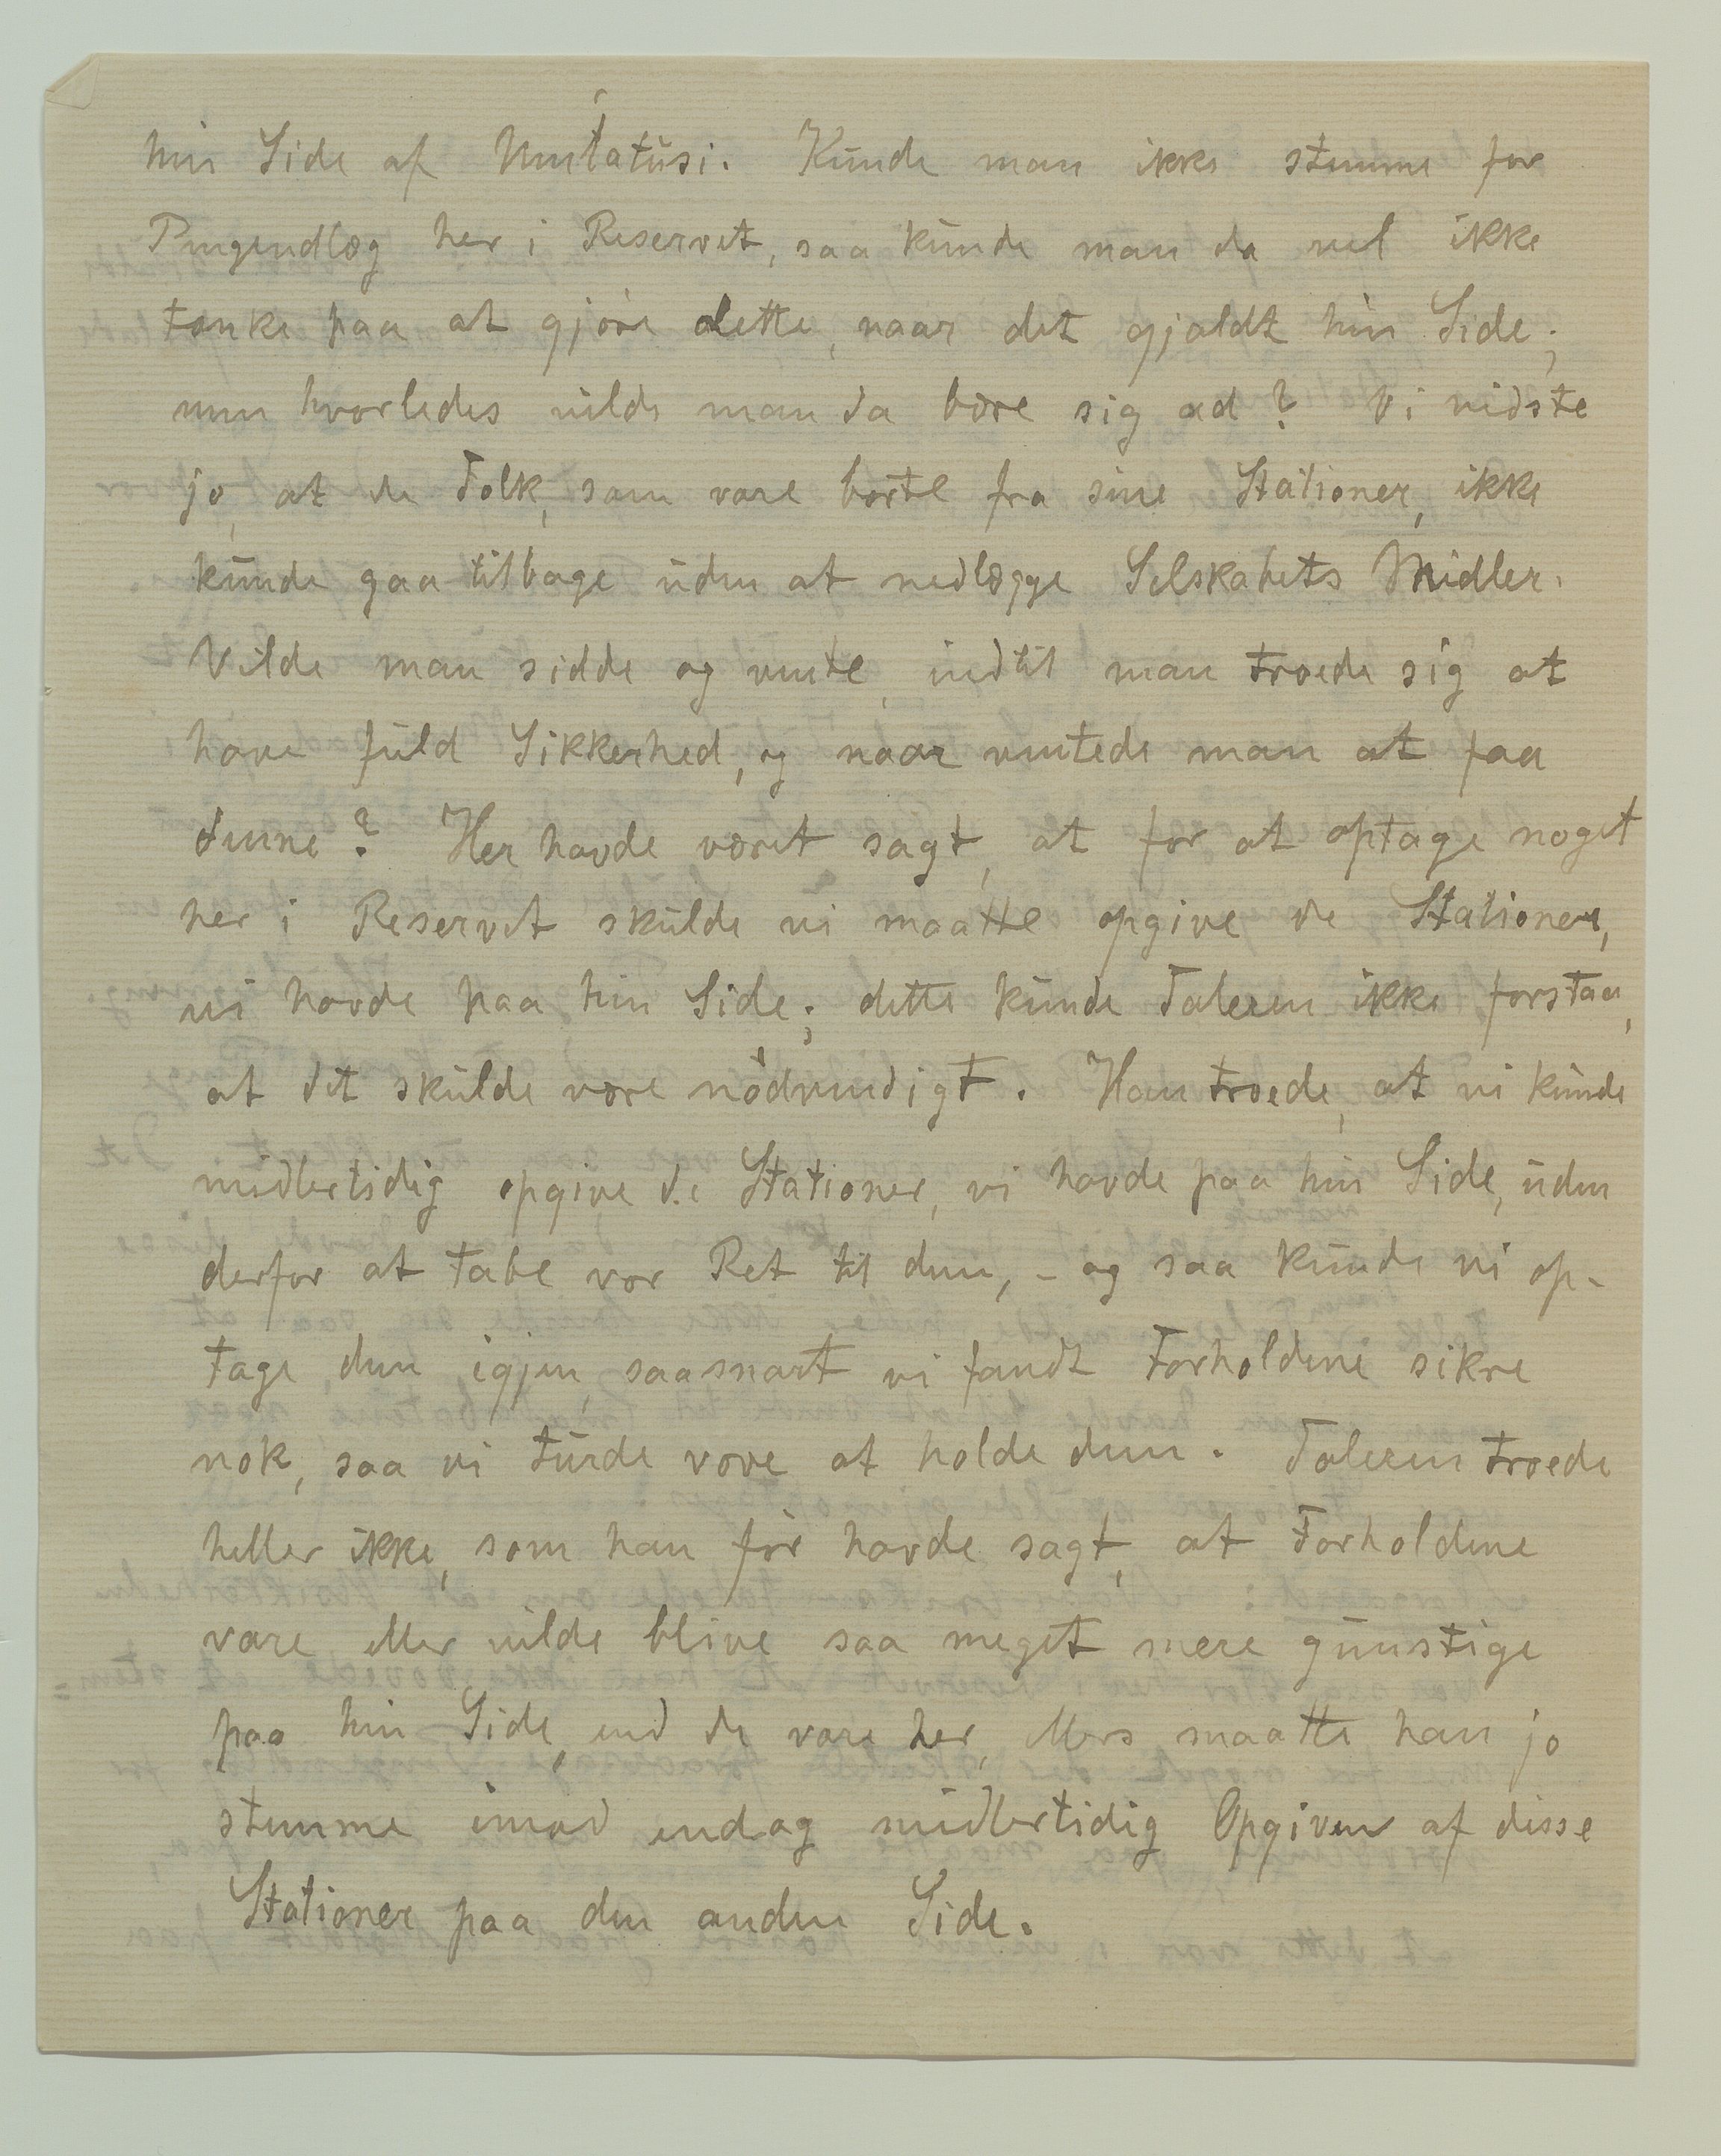 hin Side af Umlatusi. Kunde man ikke stemme for
Pengeudlæg her i Reservet, saa kunde man da vel ikke
tænke paa at gjøre dette, naar det gjaldt hin Side;
men hvorledes vilde man da bære sig ad? Vi vidste
jo, at de Folk, som vare borte fra sine Stationer, ikke
kunde gaa tilbage uden at nedlægge Selskabets Midler.
Vilde man sidde og vente, indtil man troede sig at
have fuld Sikkerhed, og naar ventede man at faa
denne? Her havde været sagt, at for at optage noget
her i Reservet skulde vi maatte opgive de Stationer,
vi havde paa hin Side; dette kunde Taleren ikke forstaa,
at det skulde være nødvendigt. Han troede, at vi kunde
midlertidig opgive de Stationer, vi havde paa hin Side, uden
derfor at tabe vor Ret til dem, - og saa kunde vi op-
tage dem igjen, saasnart vi fandt Forholdene sikre
nok, saa vi turde vove at holde dem. Taleren troede
heller ikke, som han før havde sagt, at Forholdene
vare eller vilde blive saa meget mere gunstige
paa hin Side, end de vare her, ellers maatte han jo
stemme imod endog midlertidig Opgiven af disse
Stationer paa den anden Side.